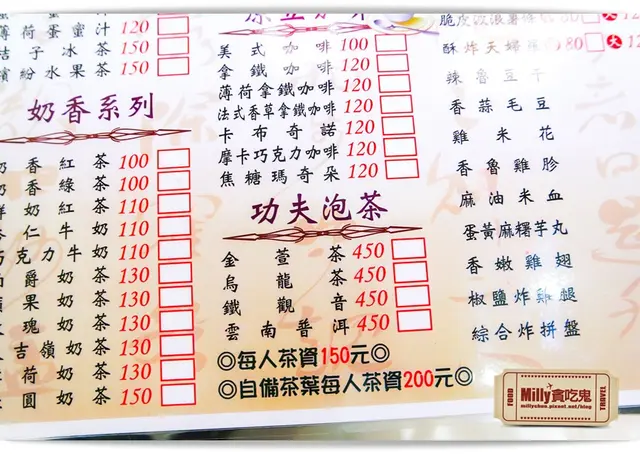 薄荷蛋蜜汁 120
桔子冰茶 150
繽紛水果茶 150
奶香系列
奶香紅茶 100
奶香綠茶 100
鮮奶紅茶 110
杏仁牛奶 110
巧克力牛奶 110
伯爵奶茶 130
蘋果奶茶 130
玫瑰奶茶 130
吉嶺奶茶 130
薄荷奶茶 130
圓奶茶 150
美式咖啡 100
拿鐵咖啡 120
薄荷拿鐵咖啡 120
法式香草拿鐵咖啡 120
卡布奇諾 120
摩卡巧克力咖啡 120
焦糖瑪奇朵 120
功夫泡茶
金萱茶 450
烏龍茶 450
鐵觀音 450
雲南普洱 450
◎每人茶資150元◎
◎自備茶葉每人茶資200元◎
脆皮波浪薯條
酥炸天婦羅 80 大 12
辣魯豆干
香蒜毛豆
雞米花
香魯雞胗
麻油米血
蛋黃麻糬芋丸
香嫩雞翅
椒鹽炸雞腿
綜合炸拼盤
FOOD
Milly貪吃鬼
millychun.pixnet.net/blog
TRAVEL